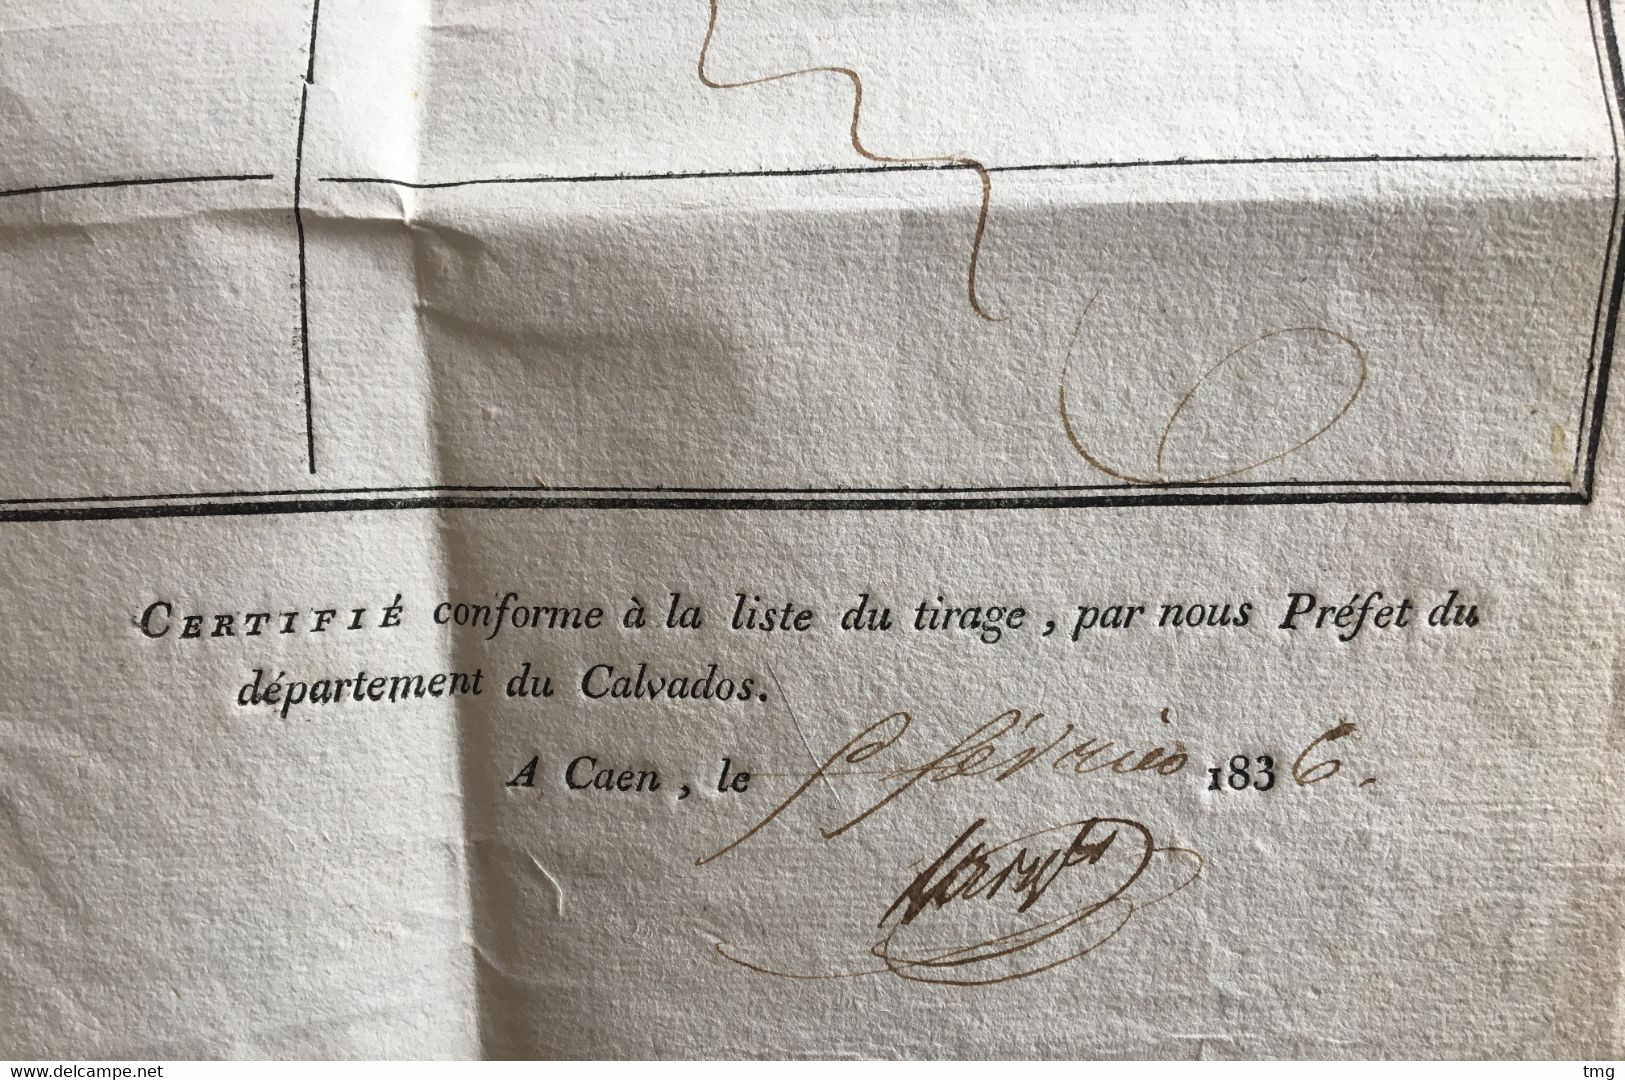 CERTIFIÉ conforme à la liste du tirage, par nous Préfet du
département du Calvados.
A Caen, le février 1836.
www.delcampe.net
tmg